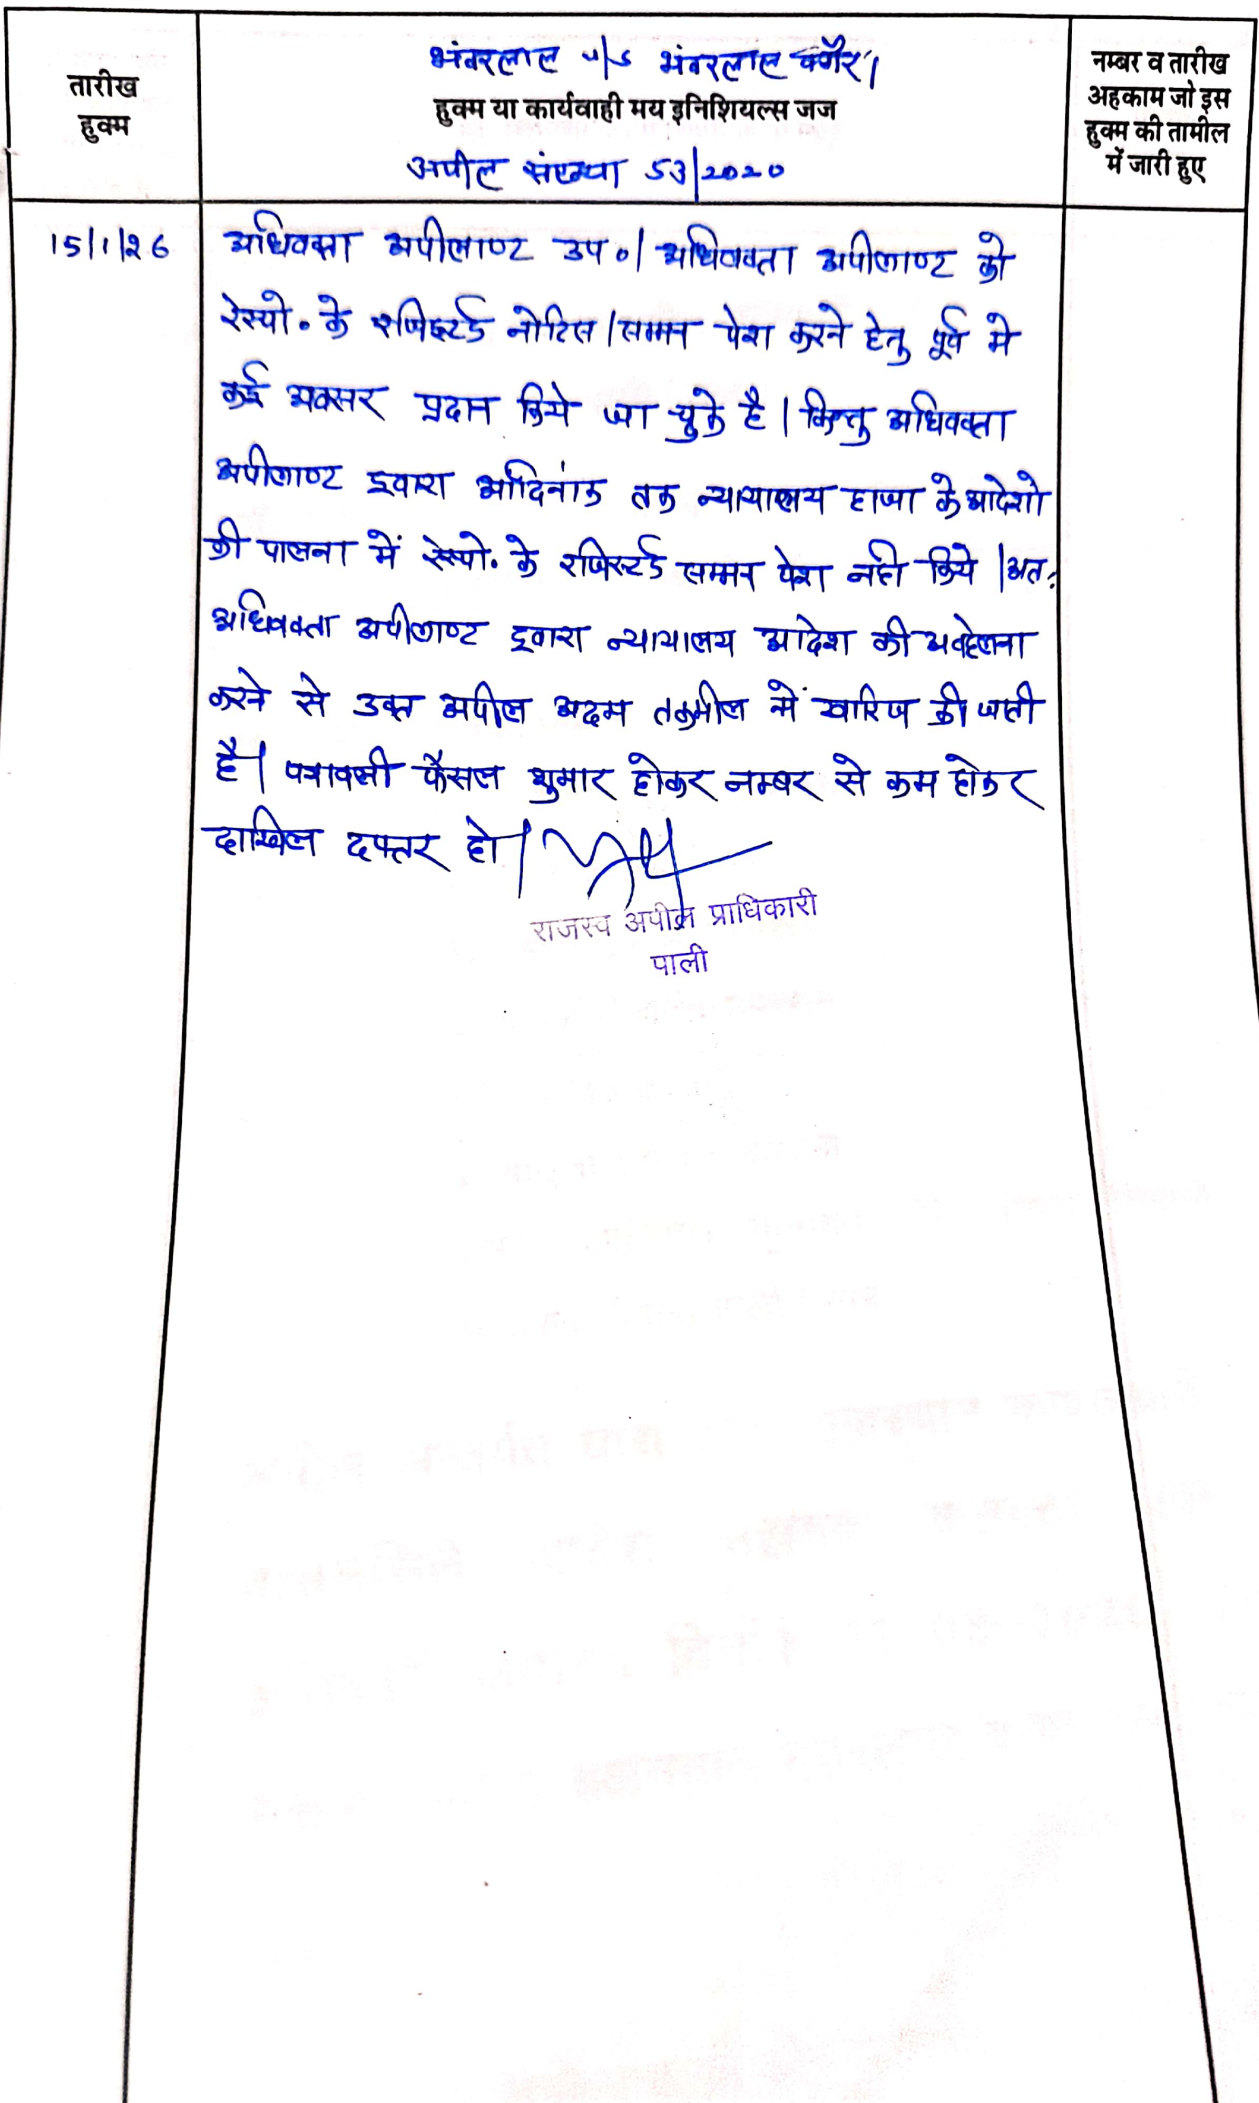 तारीख
हुक्म
भंवरलाल v/s भंवरलाल वगैरा
हुक्म या कार्यवाही मय इनिशियल्स जज
अपील संख्या 53/2020
नम्बर व तारीख
अहकाम जो इस
हुक्म की तामील
में जारी हुए
15/1/26
अधिवक्ता अपीलाण्ट उप०। अधिवक्ता अपीलाण्ट को
रेस्पो. के रजिस्टर्ड नोटिस/सम्मन पेश करने हेतु पूर्व मे
कई अवसर प्रदान किये जा चुके है। किन्तु अधिवक्ता
अपीलाण्ट द्वारा आदिनांक तक न्यायालय हाजा के आदेशो
की पालना में रेस्पो. के रजिस्टर्ड सम्मन पेश नही किये।अत:
अधिवक्ता अपीलाण्ट द्वारा न्यायालय आदेश की अवहेलना
करने से उक्त अपील अदम तकमील में खारिज की जाती
है। पत्रावली फैसल शुमार होकर नम्बर से कम होकर
दाखिल दफ्तर हो।
राजस्व अपील प्राधिकारी
पाली